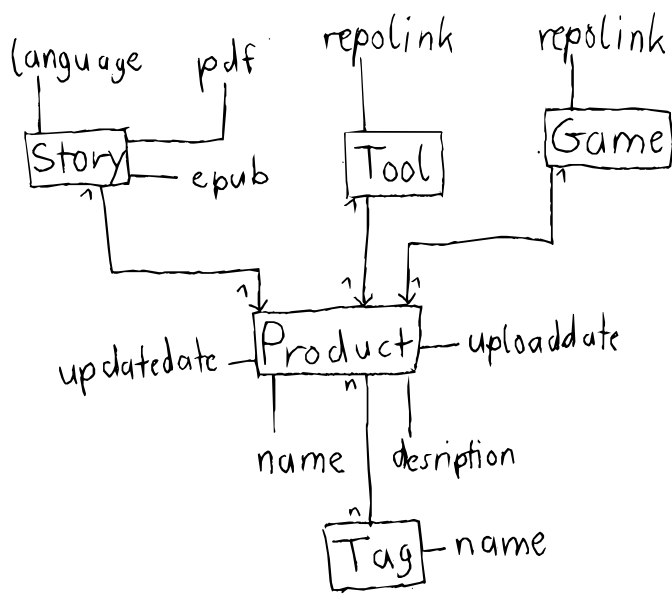 language
pdf
repolink
repolink
Story
epub
Tool
Game
1
1
1
1
1
1
Product
updatedate
uploaddate
n
name
desription
n
Tag
name